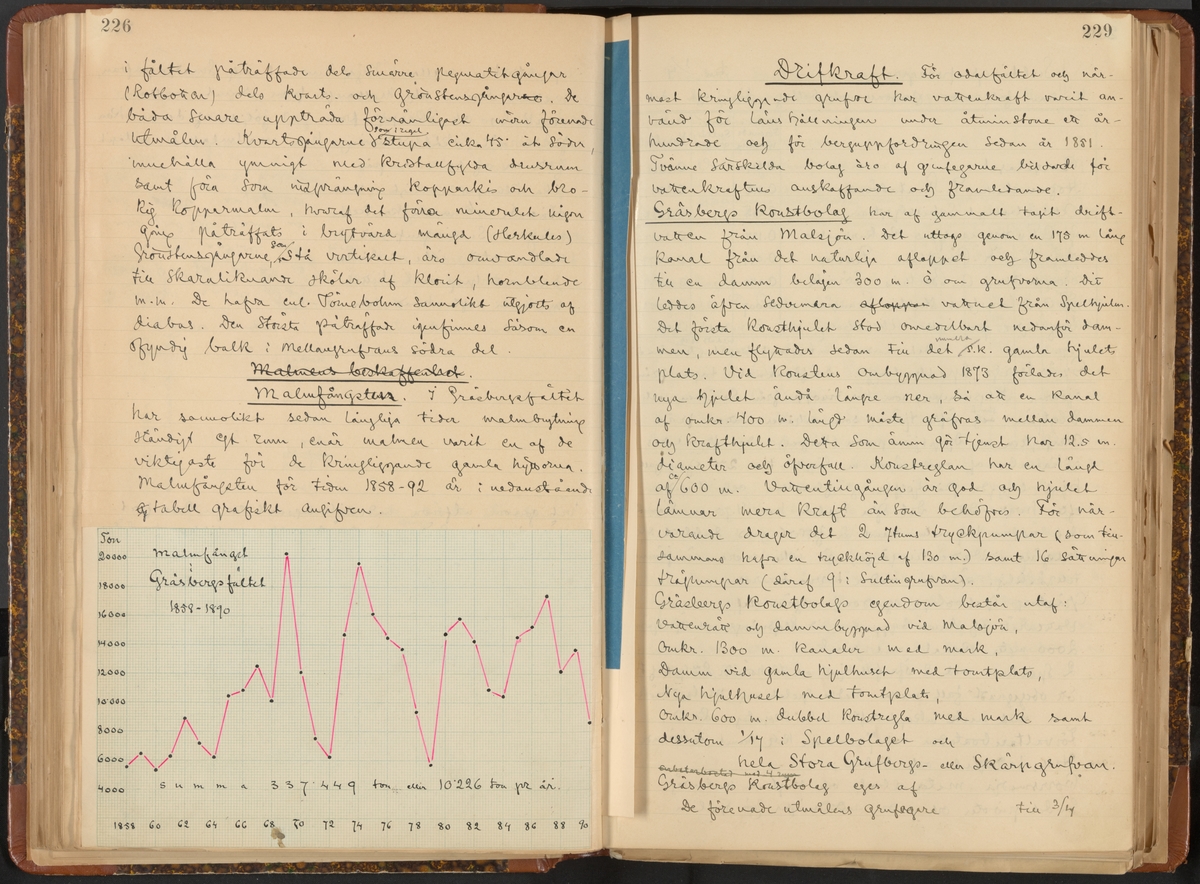 226
i fältet påträffade dels smärre pegmatitgångar
(Rotbottnar) dels kvarts- och Grönstensgångarne. De
båda senare uppträda förnämligast inom förenade
utmålen. Kvartsgångarne som i regel stupa cirka 45° åt söder,
innehålla ymnigt med kristallfyllda drusrum
samt föra som insprängning kopparkis och bro-
kig kopparmalm, hvaraf det förra mineralet någon
gång påträffats i brytvärd mängd (Herkules)
Grönstensgångarne, som stå vertikalt, äro omvandlade
till skarnliknande skölar af klorit, hornblende
m.m. De hafva enl. Törnebohm sannolikt utgjorts af
diabas. Den största påträffade igenfinnes såsom en
ofyndig balk i Mellangrufvans södra del.
Malmens beskaffenhet.
Malmfångsten. I Gräsbergsfältet
har sannolikt sedan långliga tider malmbrytning
ständigt egt rum, enär malmen varit en af de
viktigaste för de kringliggande gamla hyttorna.
Malmfångsten för tiden 1858-92 är i nedanstående
tabell grafiskt angifven.
Ton
20000
18000
16000
14000
12000
10000
8000
6000
4000
Malmfånget
i
Gräsbergsfältet
1858-1890
summa 337'449 ton eller 10'226 ton pr år.
1858 60 62 64 66 68 70 72 74 76 78 80 82 84 86 88 90
229
Drifkraft. För odalfältet och när-
mast kringliggande grufvor har vattenkraft varit an-
vänd för länshållningen under åtminstone ett år-
hundrade och för berguppfordringen sedan år 1881.
Tvänne särskilda bolag äro af grufegarne bildade för
vattenkraftens anskaffande och framledande.
Gräsbergs Konstbolag har af gammalt tagit drift-
vatten från Malsjön. Det uttogs genom en 175 m lång
kanal från det naturliga afloppet och framleddes
till en damm belägen 300 m. Ö om grufvorna. Dit
leddes äfven sedermera afloppet vattnet från Spelhjulen.
Det första konsthjulet stod omedelbart nedanför dam-
men, men flyttades sedan till det s.k. gamla hjulets
plats. Vid Konstens ombyggnad 1873 förlades det
nya hjulet ändå längre ner, så att en kanal
af omkr. 400 m. längd måste gräfvas mellan dammen
och krafthjulet. Detta som ännu gör tjenst har 12.5 m.
diameter och öfverfall. Konstreglan har en längd
af 600 m. Vattentillgången är god och hjulet
lämnar mera kraft än som behöfves. För när-
varande drager det 2 7tums tryckpumpar (som till-
sammans hafva en tryckhöjd af 130 m.) samt 16 sättningar
träpumpar (däraf 9 i Sveltingrufvan).
Gräsbergs Konstbolags egendom består utaf:
Vattenrätt och dammbyggnad vid Malsjön,
Omkr. 1300 m. kanaler med mark,
Damm vid gamla hjulhuset med tomtplats,
Nya hjulhuset med tomtplats,
Omkr. 600 m. dubbel konstregla med mark samt
dessutom 1/14 i Spelbolaget och
hela Stora Grafbergs- eller Skärpgrufvan.
Gräsbergs Konstbolag eges af
De förenade utmålens grufegare till 3/4